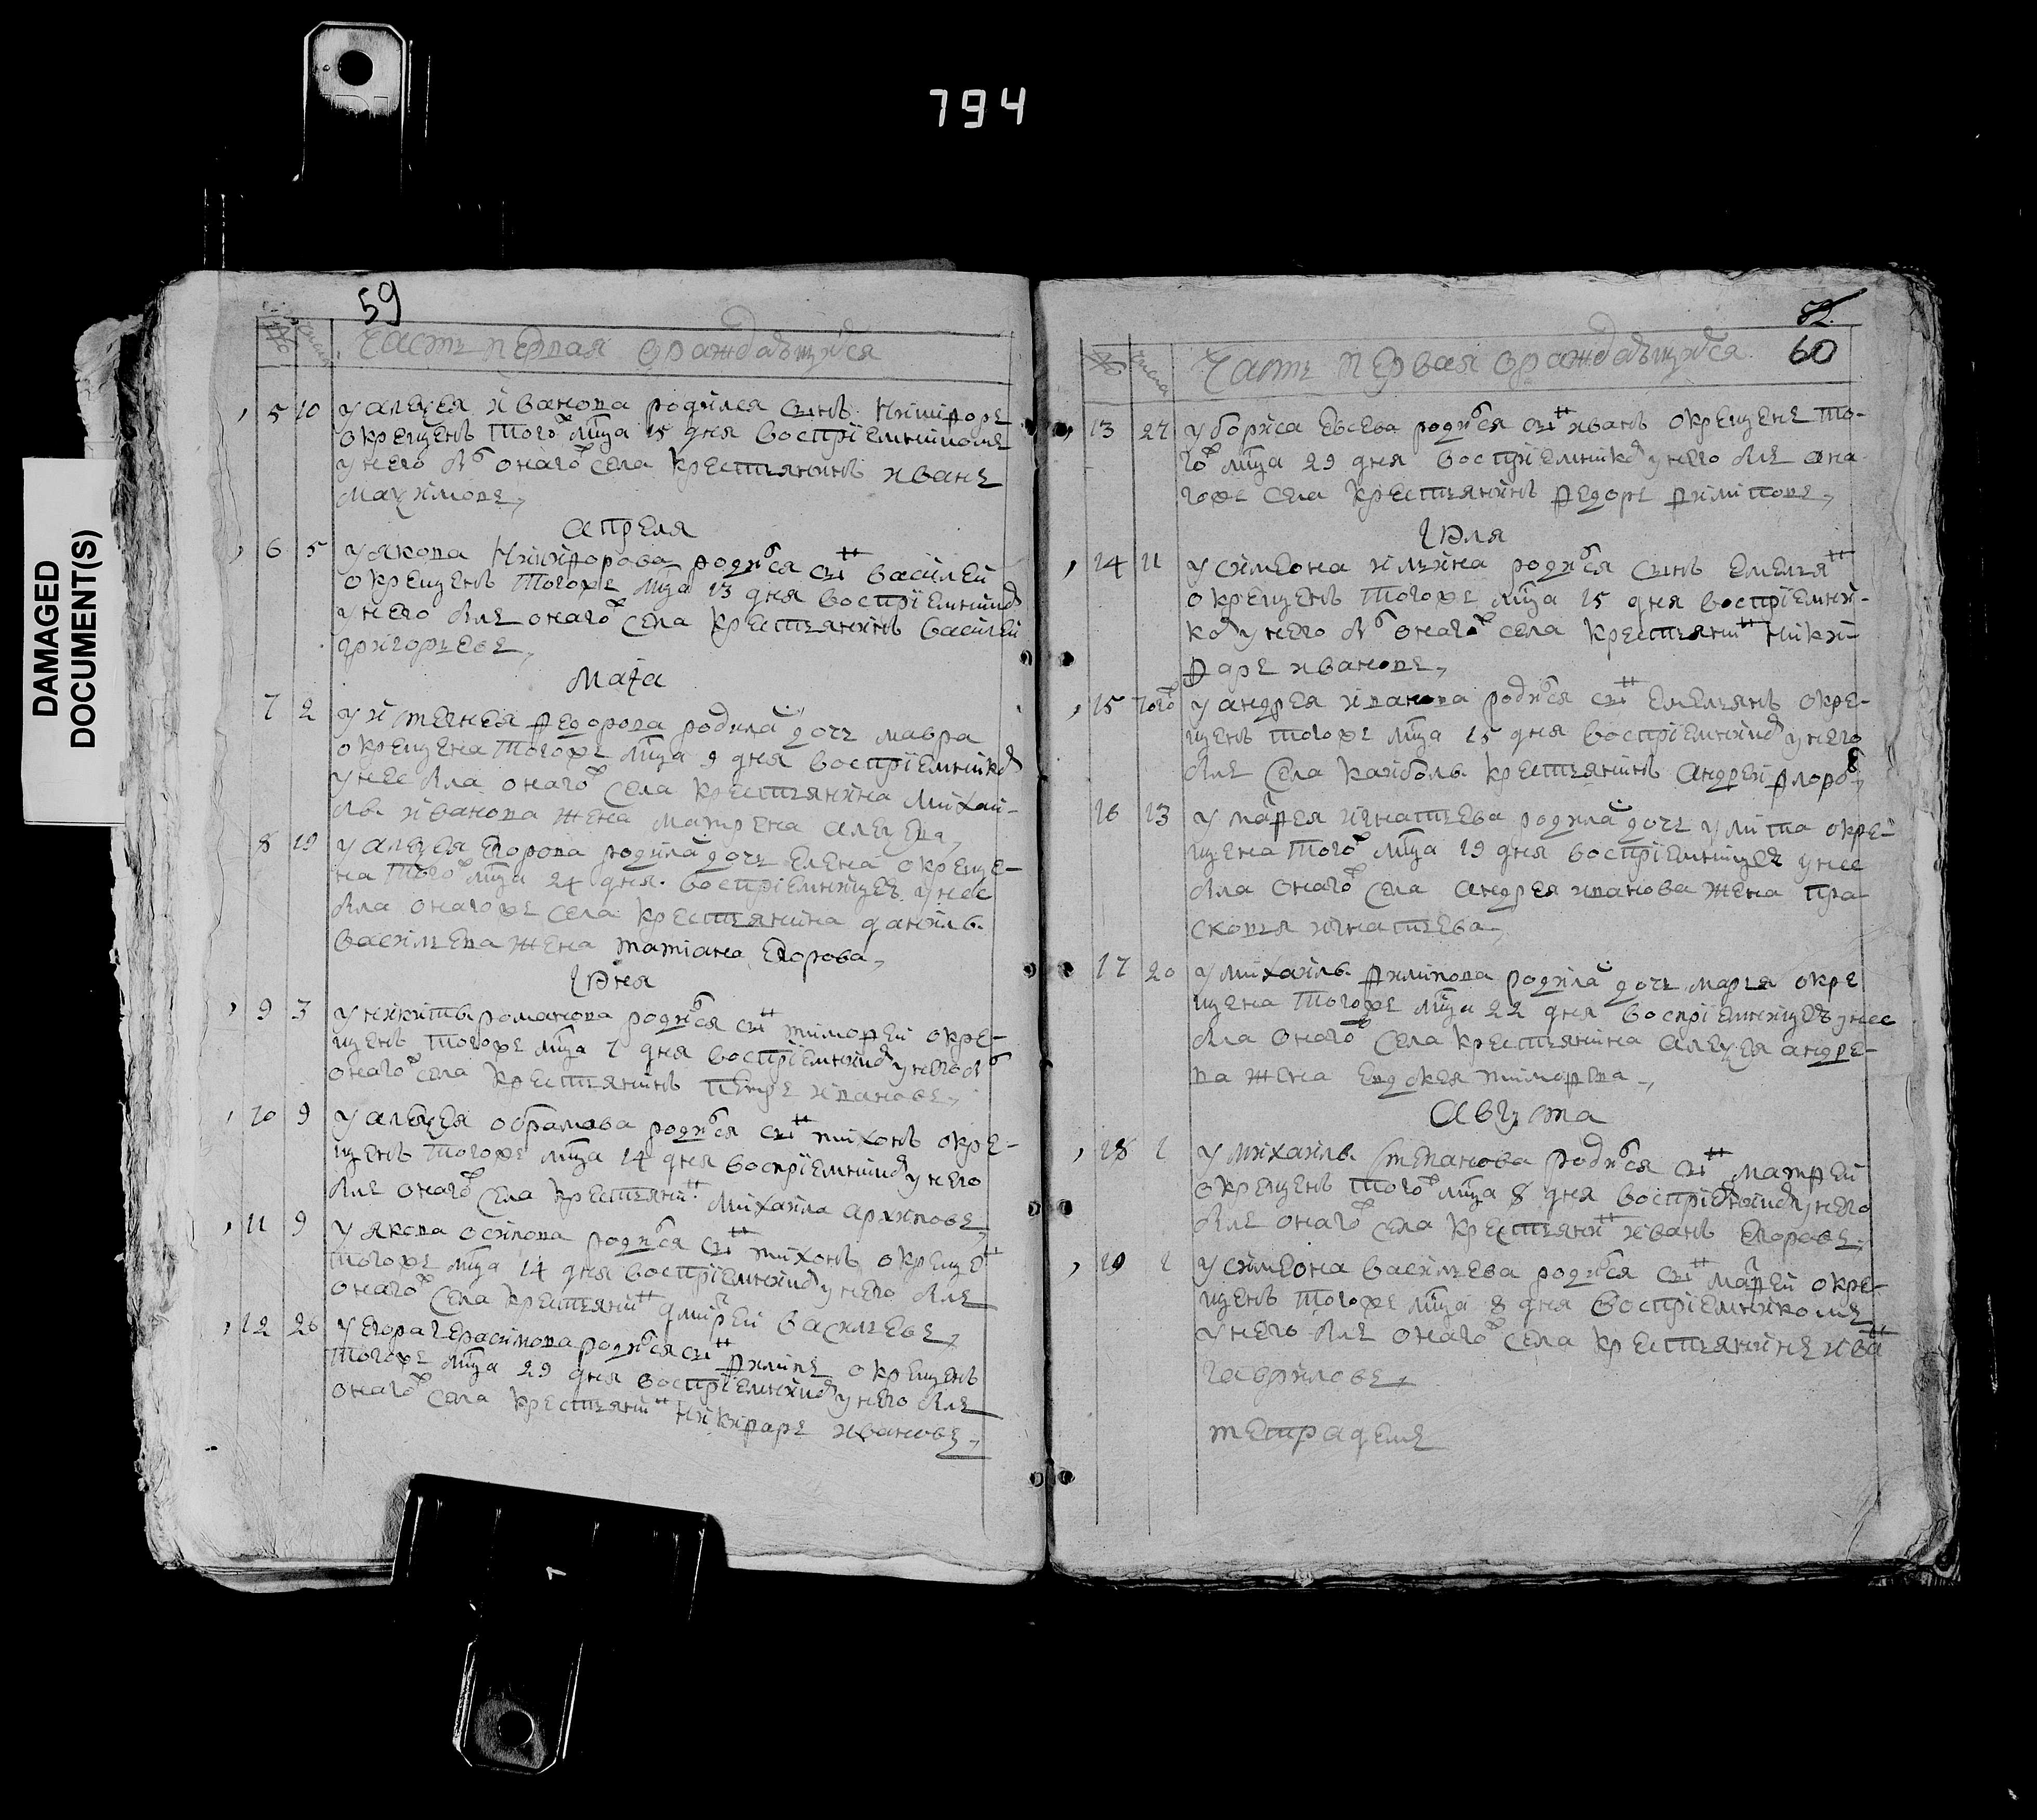 794
DAMAGED
DOCUMENT(S)
59
№ числа
Часть первая ораждающихся
5 10 у алеѯея иванова родился сынъ никифоръ
окрещенъ того ж мца 15 дня восприемникомъ
у него былъ онаго ж села крестьянинъ иванъ
маѯимовъ,
апреля
6 5 у якова никифорова родился сынъ василей
окрещенъ тогожъ мца 13 дня восприемнико
у него былъ онаго ж села крестьянинъ василей
григорьевъ,
маѓа
7 2 у федорова родила дочь мавра
окрещена тогожъ мца 9 дня восприемнико
у нее была онаго ж села крестьянина михаи-
лы иванова жена матрена алеѯева,
8 19 у алеѯея егорова родила дочь елена окреще-
на того ж мца 24 дня восприемницеи у нее
была онагожъ села крестьянина данилы
васильева жена татiана егорова,
Iюня
9 3 у никиты романова родился сынъ тимофеи окре-
щенъ тогожъ мца 7 дня восприемнико у него бы
онаго ж села крестьянинъ петръ ивановъ,
10 9 у алеѯея обрамова родился сынъ тихонъ окре-
щенъ тогожъ мца 14 дня восприемнико у него
былъ онаго ж села крестьянин михаила архиповъ,
11 9 у якова осипова родился сынъ тихонъ окрещен
тогожъ мца 14 дня восприемнико у него былъ
онаго ж села крестьянин дмитреи васильевъ,
12 26 у егора герасимова родился сынъ филипъ окрещенъ
тогожъ мца 29 дня восприемнико у него былъ
онаго ж села крестьянин никифаръ ивановъ,
60
№ числа
Часть первая ораждающихся
13 27 у бориса евсева родился сын иванъ окрещенъ то-
го ж мца 29 дня восприемнико у него былъ она-
гожъ села крестьянинъ федоръ филиповъ,
Iюля
14 11 у симеона ильина родился сынъ емельян
окрещенъ тогожъ мца 15 дня восприемни-
ко у него бы онаго ж села крестьянин ники-
фаръ ивановъ,
15 того у андрея иванова родился сын емельянъ окре-
щенъ тогожъ мца 15 дня восприемнико у него
былъ села каиболы крестьянинъ андреи флоров,
16 13 у игнатьева родила дочь улита окре-
щена того ж мца 19 дня восприемницеи у нее
была онаго ж села андрея иванова жена пра
сковья игнатьева,
17 20 у михаилы филипова родила дочь марья окре
щена тогожъ мца 22 дня восприемницеи у нее
была онаго ж села крестьянина алеѯея андре-
ва жена евдокея тимофева,
августа
18 2 у михаилы степанова родился сын матфеи
окрещенъ того ж мца 8 дня восприемнико у него
былъ онаго ж села крестьянин иванъ егоравъ,
19 2 у симеона васильева родился сын матфеи окре-
щенъ тогожъ мца 8 дня восприемникомъ
у него былъ онаго ж села крестьянинъ иван
гавриловъ,